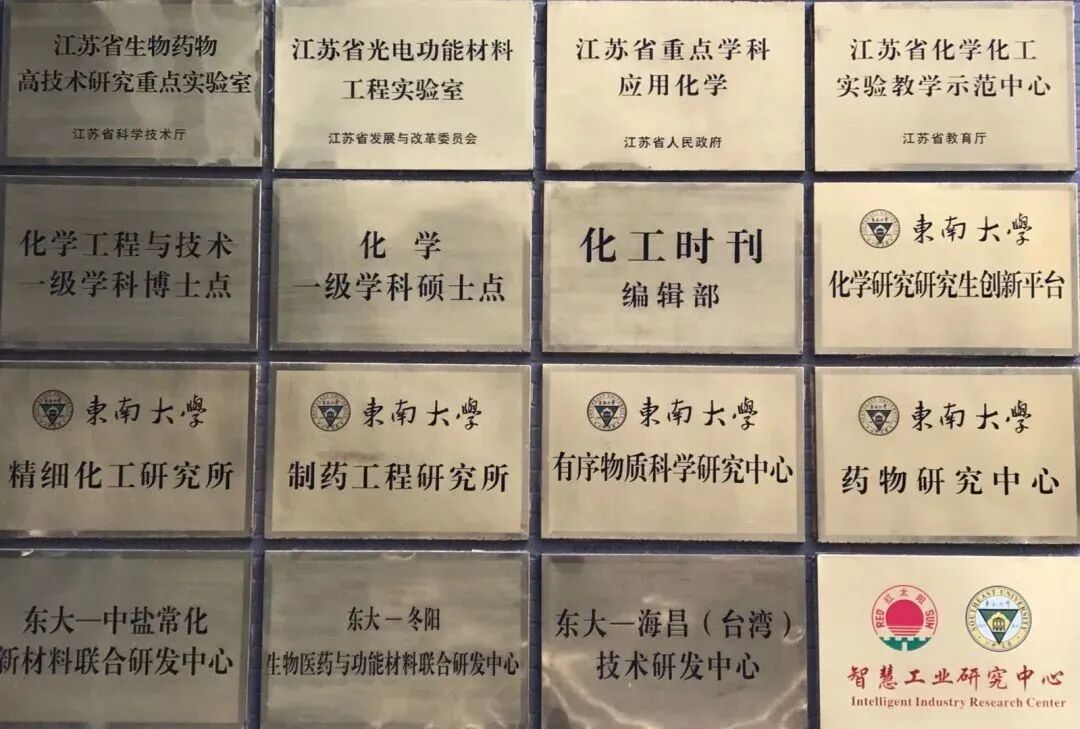 江苏省生物药物
高技术研究重点实验室
江苏省科学技术厅
江苏省光电功能材料
工程实验室
江苏省发展与改革委员会
江苏省重点学科
应用化学
江苏省人民政府
江苏省化学化工
实验教学示范中心
江苏省教育厅
化学工程与技术
一级学科博士点
化学
一级学科硕士点
化工时刊
编辑部
東南大學
化学研究研究生创新平台
東南大學
精细化工研究所
東南大學
制药工程研究所
東南大學
有序物质科学研究中心
東南大學
药物研究中心
东大—中盐常化
新材料联合研发中心
东大—冬阳
生物医药与功能材料联合研发中心
东大—海昌（台湾）
技术研发中心
红太阳
RED SUN
SOUTHEAST UNIVERSITY
智慧工业研究中心
Intelligent Industry Research Center